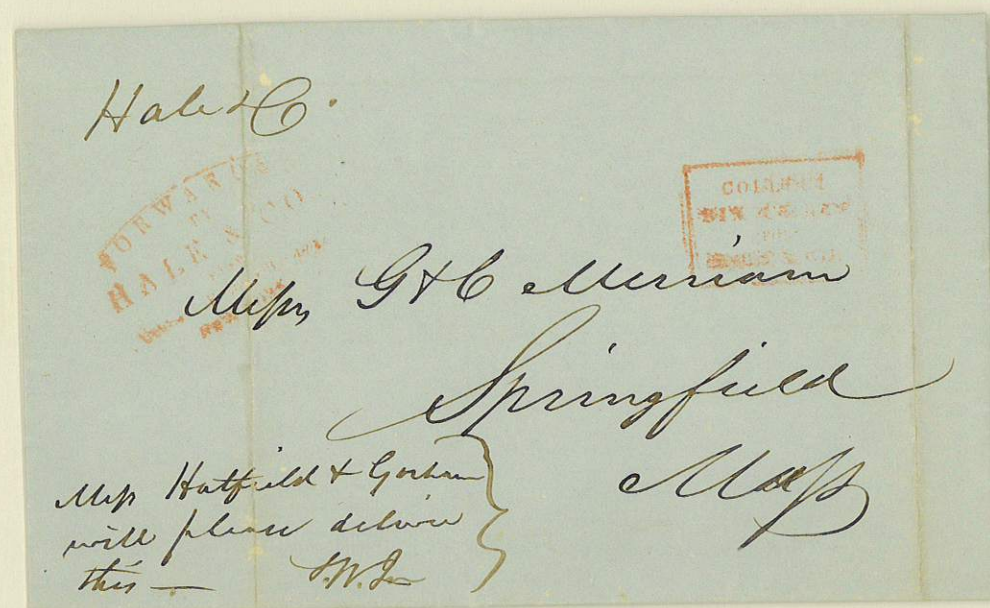 Hale & Co.
FORWARDED
BY
HALE & CO
COLLECT
SIX CENTS
FOR
HALE & CO.
Messrs G & C Merriam
Springfield
Mass
Mess Hatfield & Gorham
will please deliver
this —